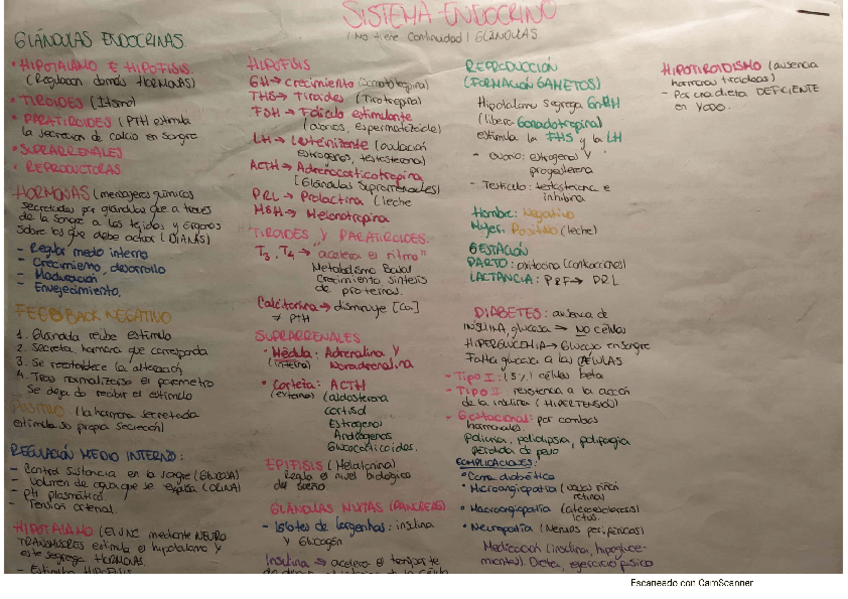 SISTEMA ENDOCRINO
(No tiene continuidad) GLÁNDULAS
GLÁNDULAS ENDOCRINAS
• HIPOTALAMO E HIPOFISIS.
(Regulación demás HORMONAS)
• TIROIDES (Itsmo)
• PARATIROIDES (PTH estimula
la secreción de calcio en sangre
• SUPRARRENALES
• REPRODUCTORAS
HORMONAS (mensajeros químicos
secretadas por glándulas que a través
de la sangre a los tejidos y órganos
sobre los que debe actuar (DIANAS)
- Regular medio interno
- Crecimiento, desarrollo
- Maduración
- Envejecimiento.
FEEDBACK NEGATIVO
1. Glándula recibe estímulo
2. Secreta hormona que corresponda
3. Se reestablece la alteración
4. Tras normalizarse el parámetro
se deja de recibir el estímulo
POSITIVO (la hormona secretada
estimula su propia secreción)
REGULACIÓN MEDIO INTERNO:
- Control sustancia en la sangre (GLUCOSA)
- Volumen de agua que se expulsa (ORINA)
- PH plasmático
- Tensión arterial.
HIPOTALAMO (El SNC mediante NEURO
TRANSMISORES estimula el hipotalamo y
este segrega HORMONAS.
- Estimula HIPOFISIS
HIPOFISIS
GH → Crecimiento (Somatotropina)
THS → Tiroides (Tirotropina)
FSH → Folículo estimulante
(ovarios, espermatozoide)
LH → Luteinizante (ovulación
estrógenos, testosterona)
ACTH → Adrenocorticotropina
(Glándulas Suprarrenales)
PRL → Prolactina (leche
MSH → Melanotropina
TIROIDES Y PARATIROIDES.
T3, T4 → acelera el ritmo"
Metabolismo Basal
Crecimiento síntesis
de proteínas.
Calcitonina → disminuye [Ca]
≠ PTH
SUPRARRENALES
• Médula: Adrenalina y
(interna) Noradrenalina
• Corteza: ACTH
(externa) (aldosterona
cortisol
Estrógenos
Andrógenos
Glucocorticoides.
EPIFISIS (Melatonina)
Regula el nivel biológico
del sueño.
GLANDULAS MIXTAS (PANCREAS)
- Islotes de Largenhas: insulina
y Glucagón
Insulina → acelera el transporte
REPRODUCCIÓN
(FORMACIÓN GAMETOS)
Hipotalamo segrega GnRH
(libera Gonadotropina)
estimula la FHS y la LH
- Ovario: estrógenos y
progesterona
- Testículo: testosterona e
inhibina
Hombre: Negativo
Mujer: Positivo (leche)
GESTACIÓN
PARTO: oxitocina (contracciones)
LACTANCIA: PRF → PRL
DIABETES: ausencia de
INSULINA, glucosa → NO células
HIPERGLUCEMIA → Glucosa en sangre
Falta glucosa a las CÉLULAS
- Tipo I: (5%) células beta
- Tipo II: resistencia a la acción
de la insulina (HIPERTENSIÓN)
- Gestacional: por cambios
hormonales.
poliuria, polidipsia, polifagia
pérdida de peso
COMPLICACIONES:
• Coma diabético
• Microangiopatía (vasos riñón
retina)
• Macroangiopatía (aterosclerosis)
ictus.
• Neuropatía (Nervios periféricos)
Medicación (insulina, hipogluce-
miantes). Dieta, ejercicio físico
HIPOTIROIDISMO (ausencia
hormonas tiroideas)
- Por una dieta DEFICIENTE
en YODO.
Escaneado con CamScanner